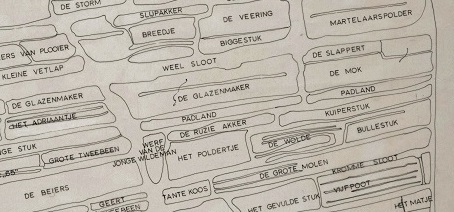 DE STORM
SLUPAKKER
DE VEERING
MARTELAARSPOLDER
BREEDJE
BIGGESTUK
ERS VAN PLOOIER
KLEINE VETLAP
WEEL SLOOT
DE SLAPPERT
DE MOK
DE GLAZENMAKER
DE GLAZENMAKER
PADLAND
HET ADRIAANTJE
PADLAND
KUIPERSTUK
DE RUZIE AKKER
BULLESTUK
NGE STUK
GROTE TWEEBEEN
WERF
VAN DE
JONGE WILDEMAN
HET POLDERTJE
DE WOLDE
DE GROTE MOLEN
KROMME SLOOT
VIJFPOOT
DE BEIERS
TANTE KOOS
GEERT
EBEEN
HET GEVULDE STUK
HET MATJE